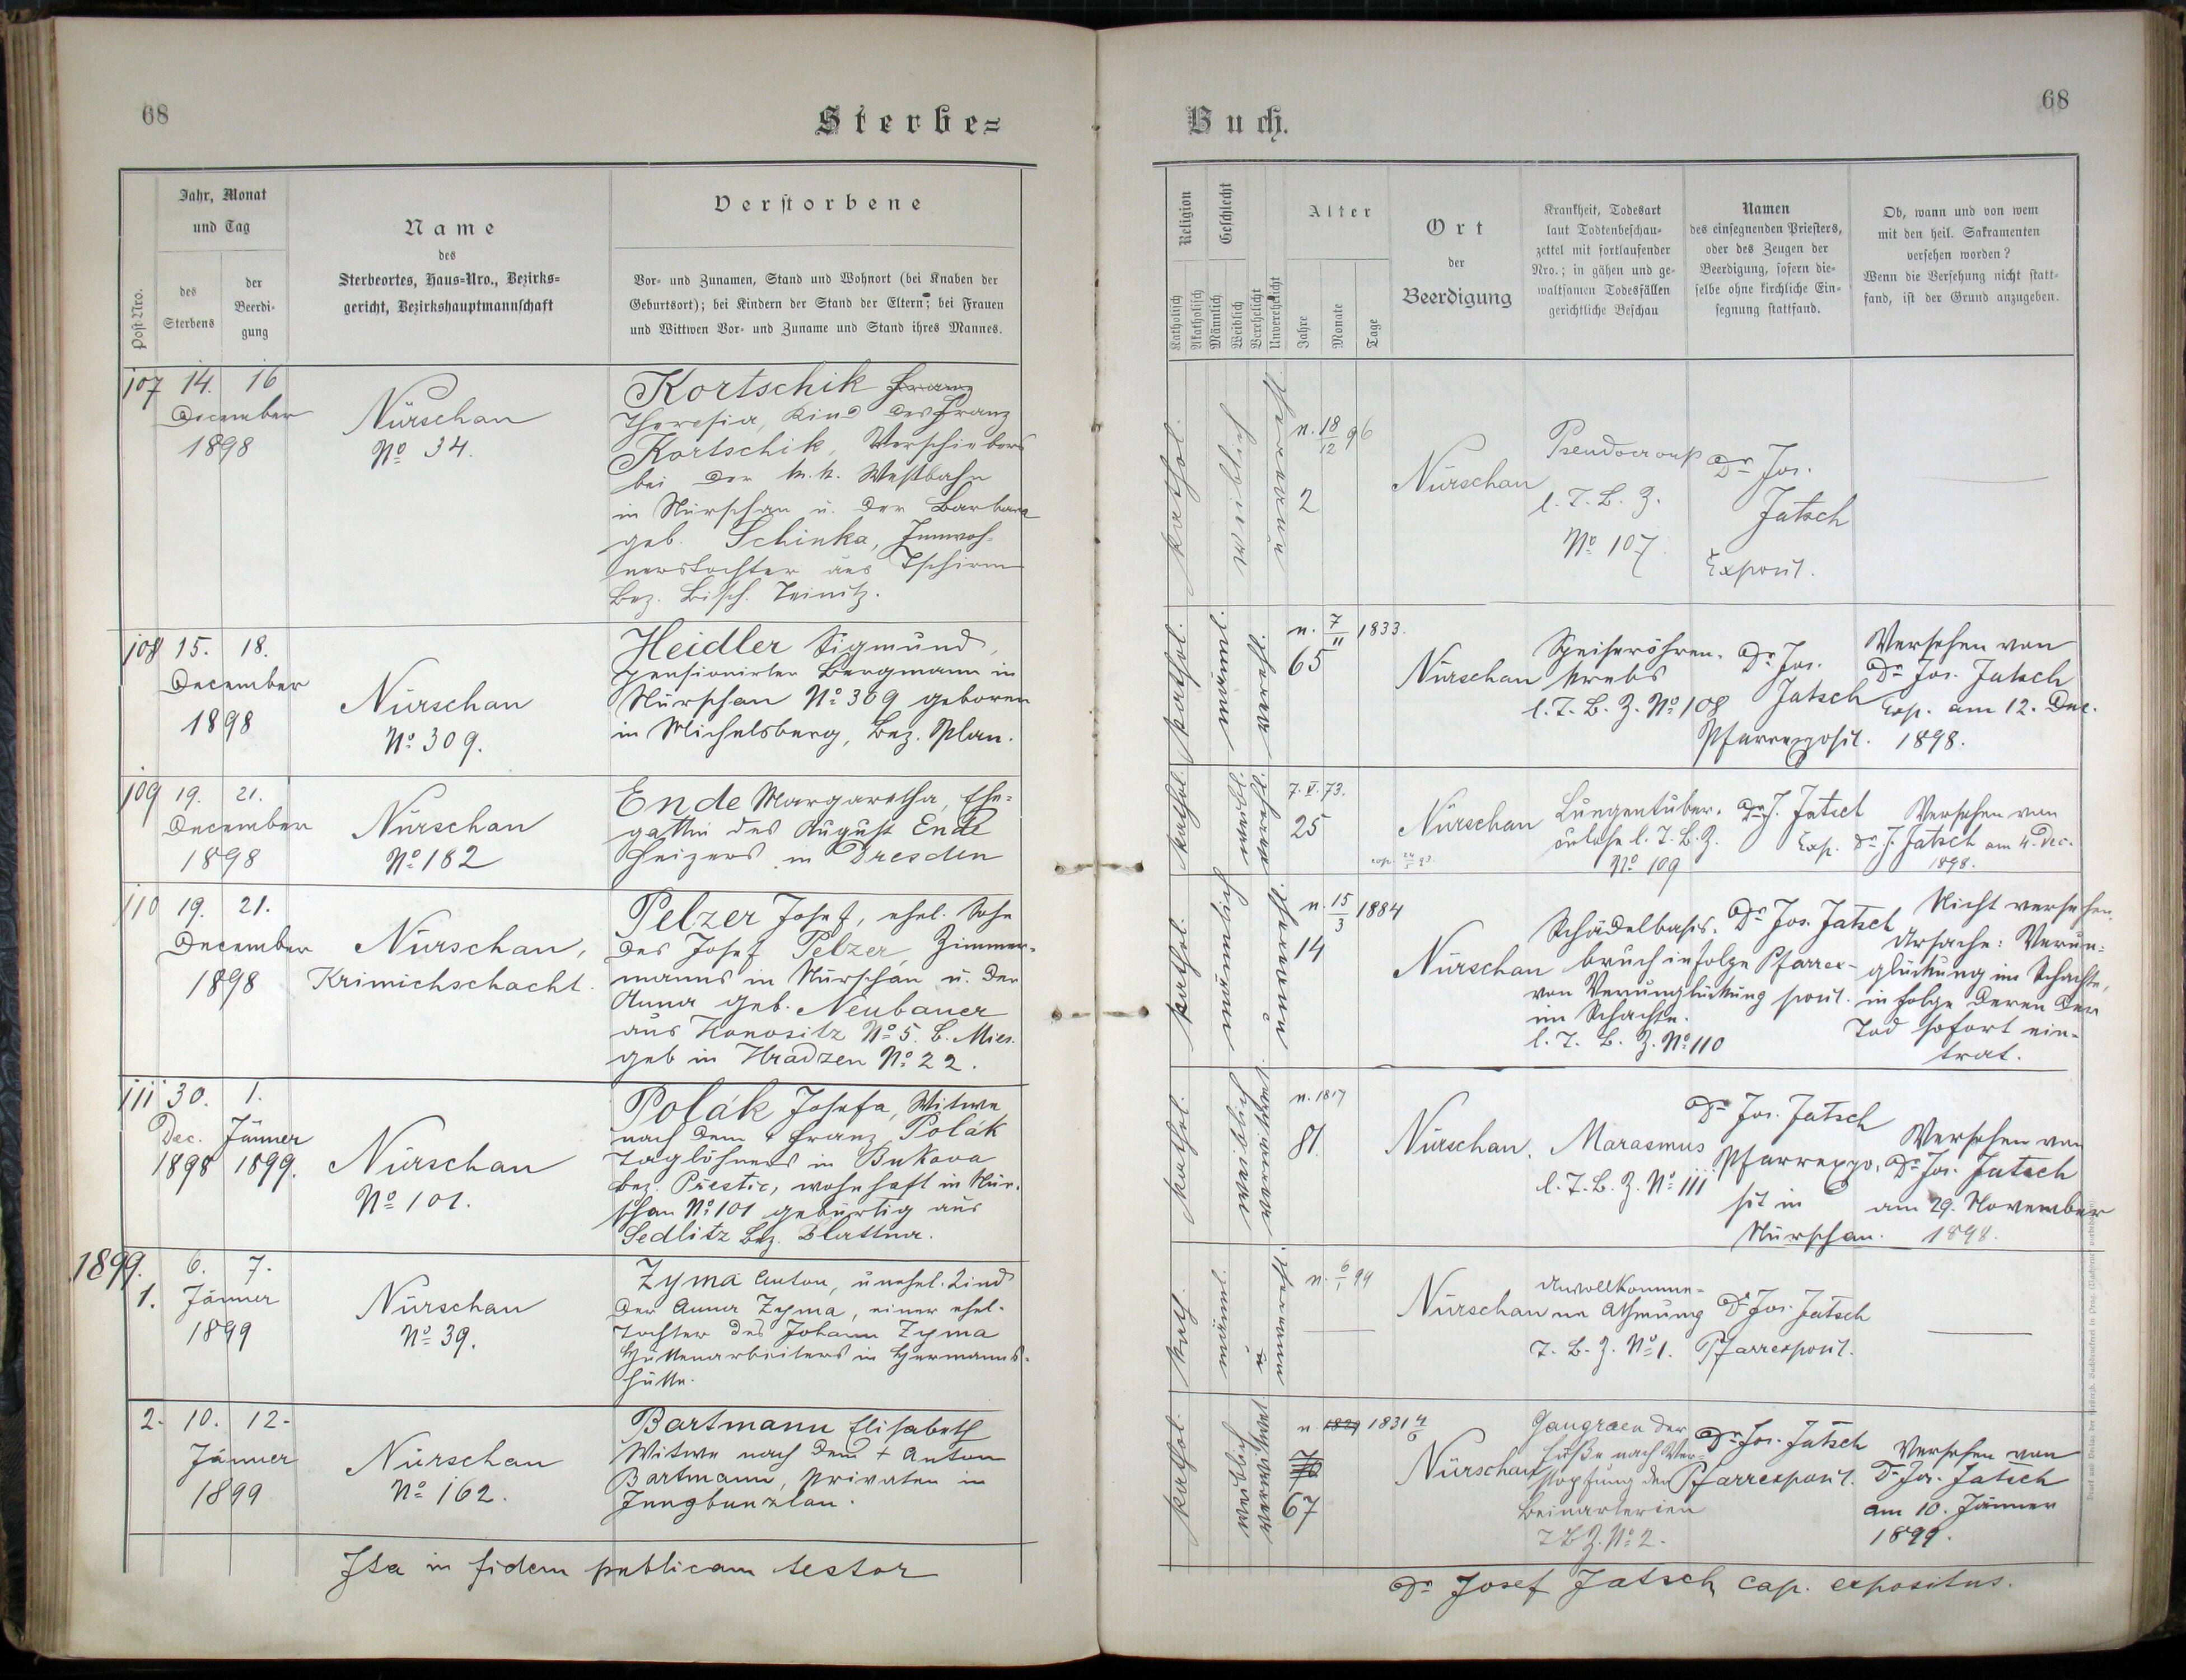 68
Sterbe=
Jahr, Monat
und Tag
Post-Nro.
des
Sterbens
der
Beerdi-
gung
Name
des
Sterbeortes, Haus-Nro., Bezirks-
gericht, Bezirkshauptmannschaft
Verstorbene
Vor- und Zunamen, Stand und Wohnort (bei Knaben der
Geburtsort); bei Kindern der Stand der Eltern; bei Frauen
und Wittwen Vor- und Zuname und Stand ihres Mannes.
107 14. 16
December
1898
Nürschan
No 34.
Kortschik Franz
Theresia, Kind des Franz
Kortschik, Verschiebers
bei der k. k. Westbahn
in Nürschan u. der Barbara
geb. Schinka, Inwoh-
nerstochter aus Tschirm
Bez. Bisch. Teinitz.
108 15. 18.
December
1898
Nürschan
No 309.
Heidler Sigmund,
pensionirter Bergmann in
Nürschan No 309 geboren
in Michelsberg, Bez. Plan.
109 19. 21.
December
1898
Nürschan
No 182
Ende Margaretha, Ehe-
gattin des August Ende
Heizers in Dresden
110 19. 21.
December
1898
Nürschan,
Krimichschacht.
Pelzer Josef, ehel. Sohn
des Josef Pelzer, Zimmer-
manns in Nürschan u. der
Anna geb. Neubauer
aus Honositz No 5. B. Mies.
geb in Hradzen No 22.
111 30. 1.
Dec. Jänner
1898 1899.
Nürschan
No 101.
Polák Josefa, Witwe
nach dem + Franz Polák
Taglöhners in Bukova
bez. Přestic, wohnhaft in Nür-
schan No 101 gebürtig aus
Sedlitz Bez. Blattna.
1899.
1. 6. 7.
Jänner
1899
Nürschan
No 39.
Zyma Anton, unehel. Kind
der Anna Zyma, einer ehel.
Tochter des Johann Zyma
Hüttenarbeiters in Hermanns-
hütte.
2. 10. 12.
Jänner
1899
Nürschan
No 162.
Bartmann Elisabeth
Witwe nach dem + Anton
Bartmann, Privaten in
Jungbunzlau.
Ita in fidem publicam testor
68
Buch.
Religion
Katholisch
Akatholisch
Geschlecht
Männlich
Weiblich
Verehelicht
Unverehelicht
Alter
Jahre
Monate
Tage
Ort
der
Beerdigung
Krankheit, Todesart
laut Todtenbeschau-
zettel mit fortlaufender
Nro.; in gähen und ge-
waltsamen Todesfällen
gerichtliche Beschau
Namen
des einsegnenden Priesters,
oder des Zeugen der
Beerdigung, sofern die-
selbe ohne kirchliche Ein-
segnung stattfand.
Ob, wann und von wem
mit den heil. Sakramenten
versehen worden?
Wenn die Versehung nicht statt-
fand, ist der Grund anzugeben.
kathol.
weiblich
unvereh.
n. 18/12 96
2
Nürschan
Pseudocroup
l. T. B. Z.
No 107.
Dr Jos.
Jatsch
Exposit.
kathol.
männl.
verehl.
n. 7/11 1833.
65
Nürschan
Speiseröhren-
krebs
l. T. B. Z. No 108
Dr Jos.
Jatsch
Pfarrexposit.
Versehen von
Dr Jos. Jatsch
Exp. am 12. Dec.
1898.
kathol.
weibl.
verehl.
7. V. 73.
25
Nürschan
Lungentuber-
culose l. T. B. Z.
No 109
Dr J. Jatsch
Exp.
Versehen von
Dr J. Jatsch am 4. Dec.
1898.
kathol.
männlich
unverehl.
n. 15/3 1884
14
Nürschan
Schädelbasis-
bruch infolge
von Verunglückung
im Schachte.
l. T. B. Z. No 110
Dr Jos. Jatsch
Pfarrex-
posit.
Nicht versehen.
Ursache: Verun-
glückung im Schachte,
in folge deren der
Tod sofort ein-
trat.
kathol.
weiblich
verwitwet
n. 1817
81.
Nürschan.
Marasmus
l. T. B. Z. No 111
Dr Jos. Jatsch
Pfarrexpo-
sit in
Nürschan.
Versehen von
Dr Jos. Jatsch
am 29. November
1898.
kath.
männl.
unverehl.
n. 6/1 99
Nürschan
Unvollkomme-
ne Athmung
T. B. Z. No 1.
Dr Jos. Jatsch
Pfarrexposit.
kathol.
weiblich
verwitwet
n. 1829 1831 4/6
70
67
Nürschan
Gangraen der
Füße nach Ver-
stopfung der
Beinarterien
T B Z. No 2.
Dr Jos. Jatsch
Pfarrexposit.
Versehen von
Dr Jos. Jatsch
am 10. Jänner
1899.
Dr Josef Jatsch cap. expositus.